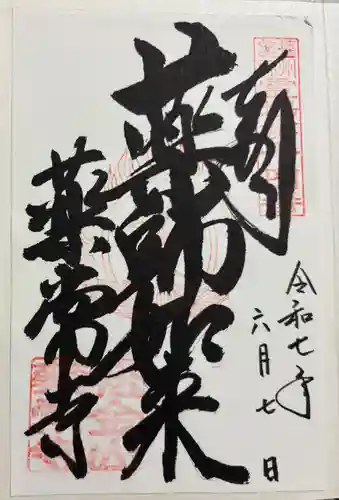 奉拝
令和七年
六月七日
薬師如来
薬常寺